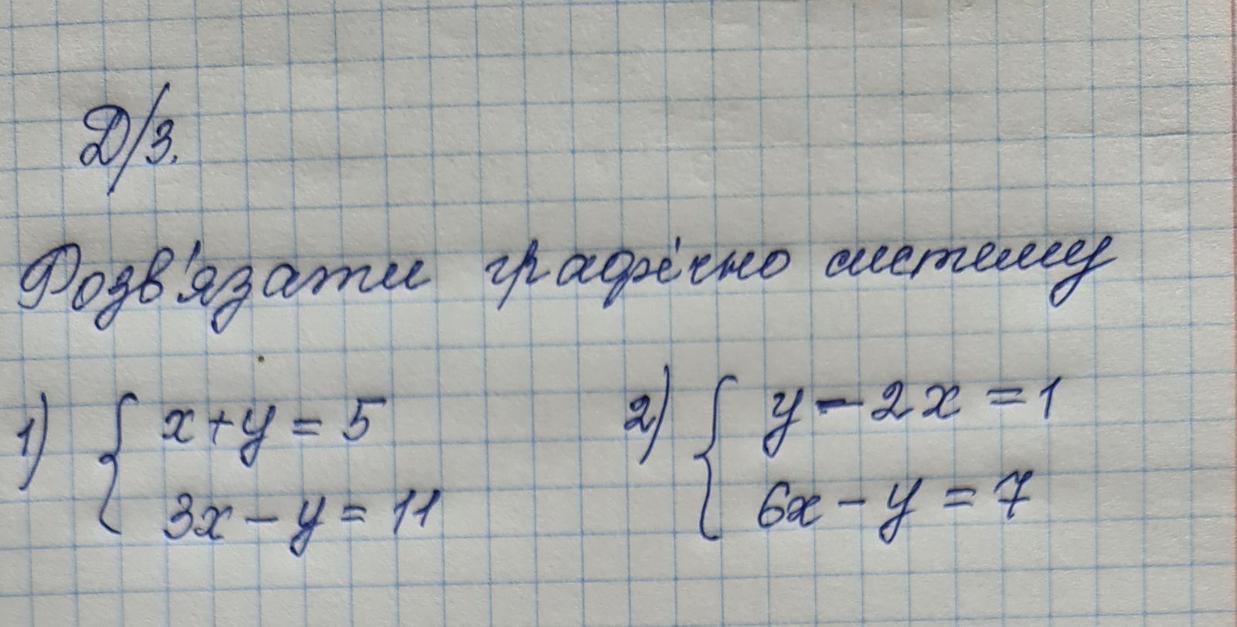 Д/З.
Розв'язати графічно систему
1) { x + y = 5
3x - y = 11
2) { y - 2x = 1
6x - y = 7